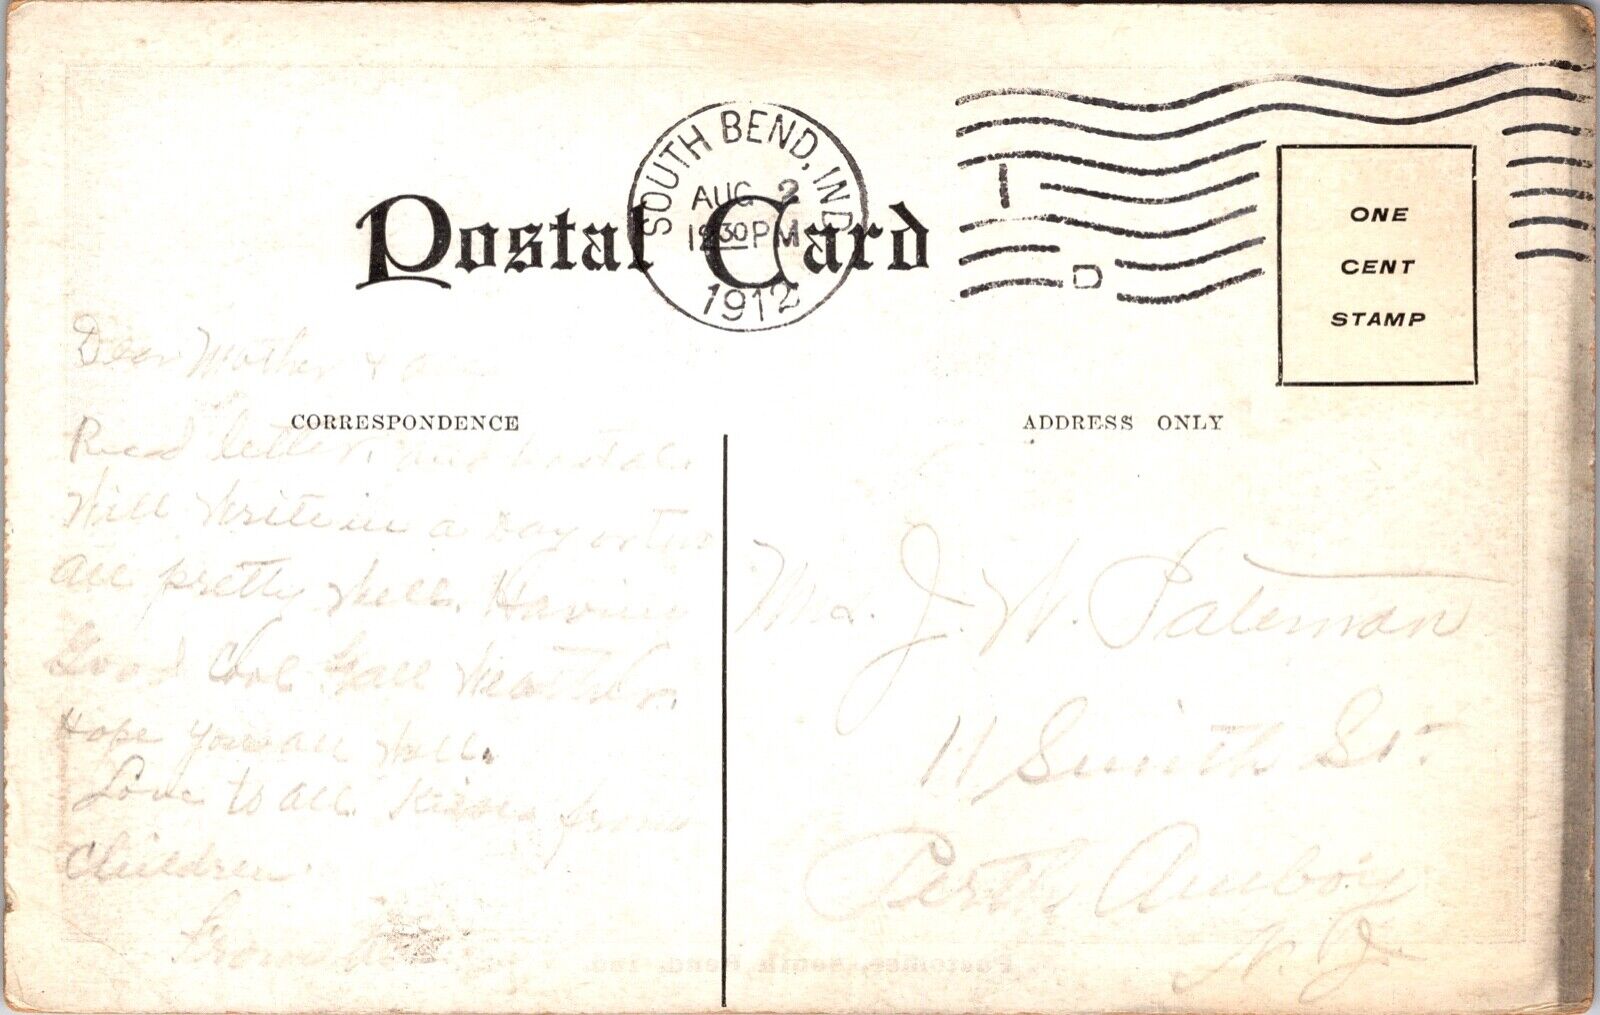 SOUTH BEND, IND.
AUG 2
12 30 PM
1912
Postal Card
D
ONE
CENT
STAMP
CORRESPONDENCE
ADDRESS ONLY
Dear Mother &
Recd letter, and postals
Will Write in a Day or two
All pretty Well. Having
Good Cool Fall Weather.
Hope you all Well.
Love to all Kisses from
Children
From
Mrs. J. W. Pateman
11 Smith St.
Perth Amboy
N. J.
Postoffice, South Bend, Ind.